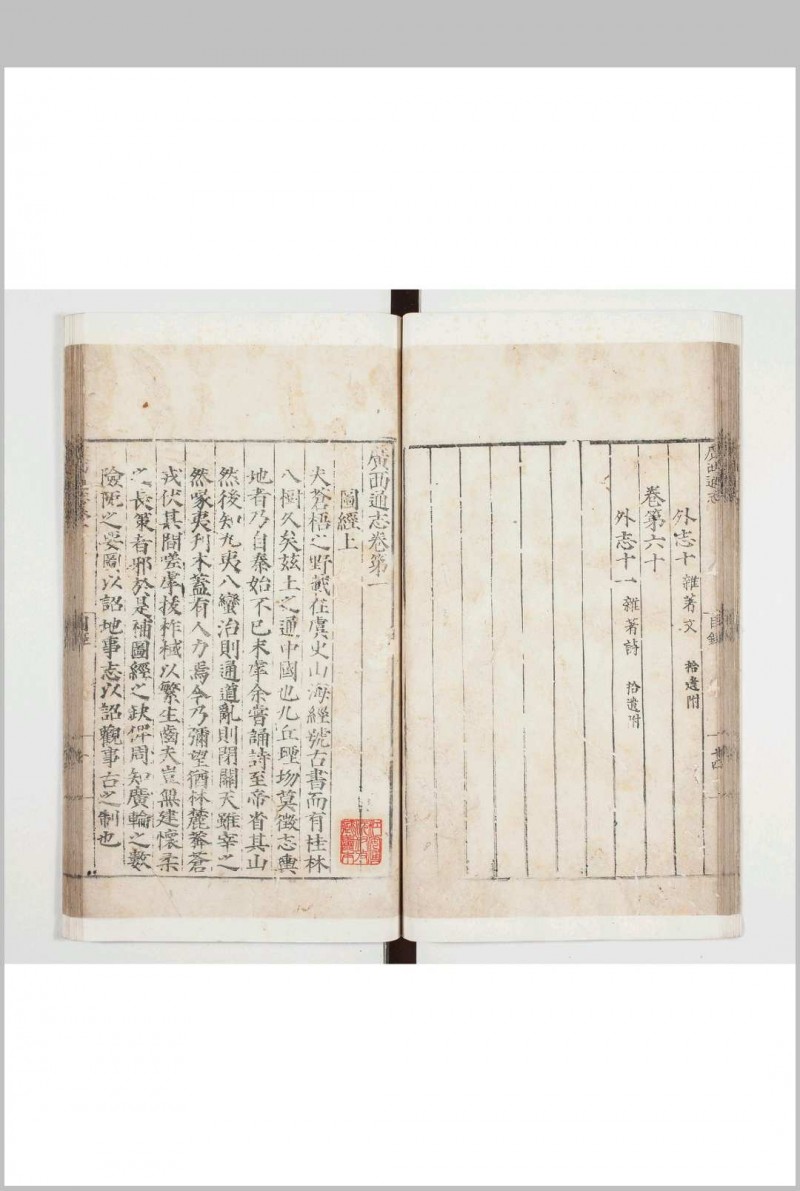 廣西通志
目錄
外志十 雜著文 拾遺附
卷第六十
外志十一 雜著詩 拾遺附
廣西通志卷第一
圖經上
夫蒼梧之野載在虞史山海經號古書而有桂林
八樹久矣茲土之通中國也九丘理物莫徵志輿
地者乃自秦始不已末乎余嘗誦詩至帝省其山
然後知九夷八蠻治則通道亂則閉關天雖宰之
然啄夷刋木蓋有人力焉今乃彌望猶林麓莽蒼
戎伏其間嗟乎拔柞棫以繁生齒夫豈無建懷柔
之長策者邪於是補圖經之缺俾周知廣輪之數
險阨之要圖以詔地事志以詔觀事古之制也